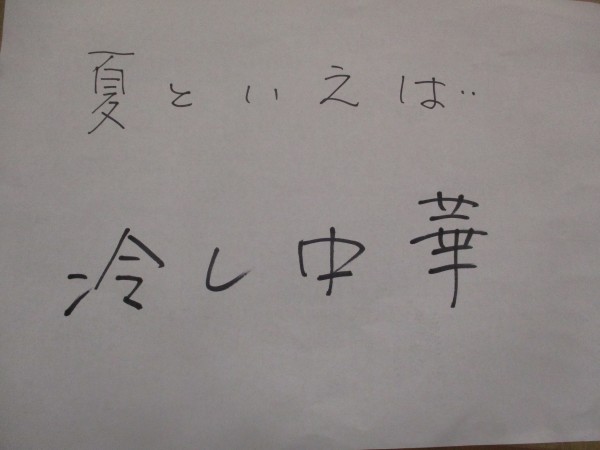 夏といえば‥
冷し中華